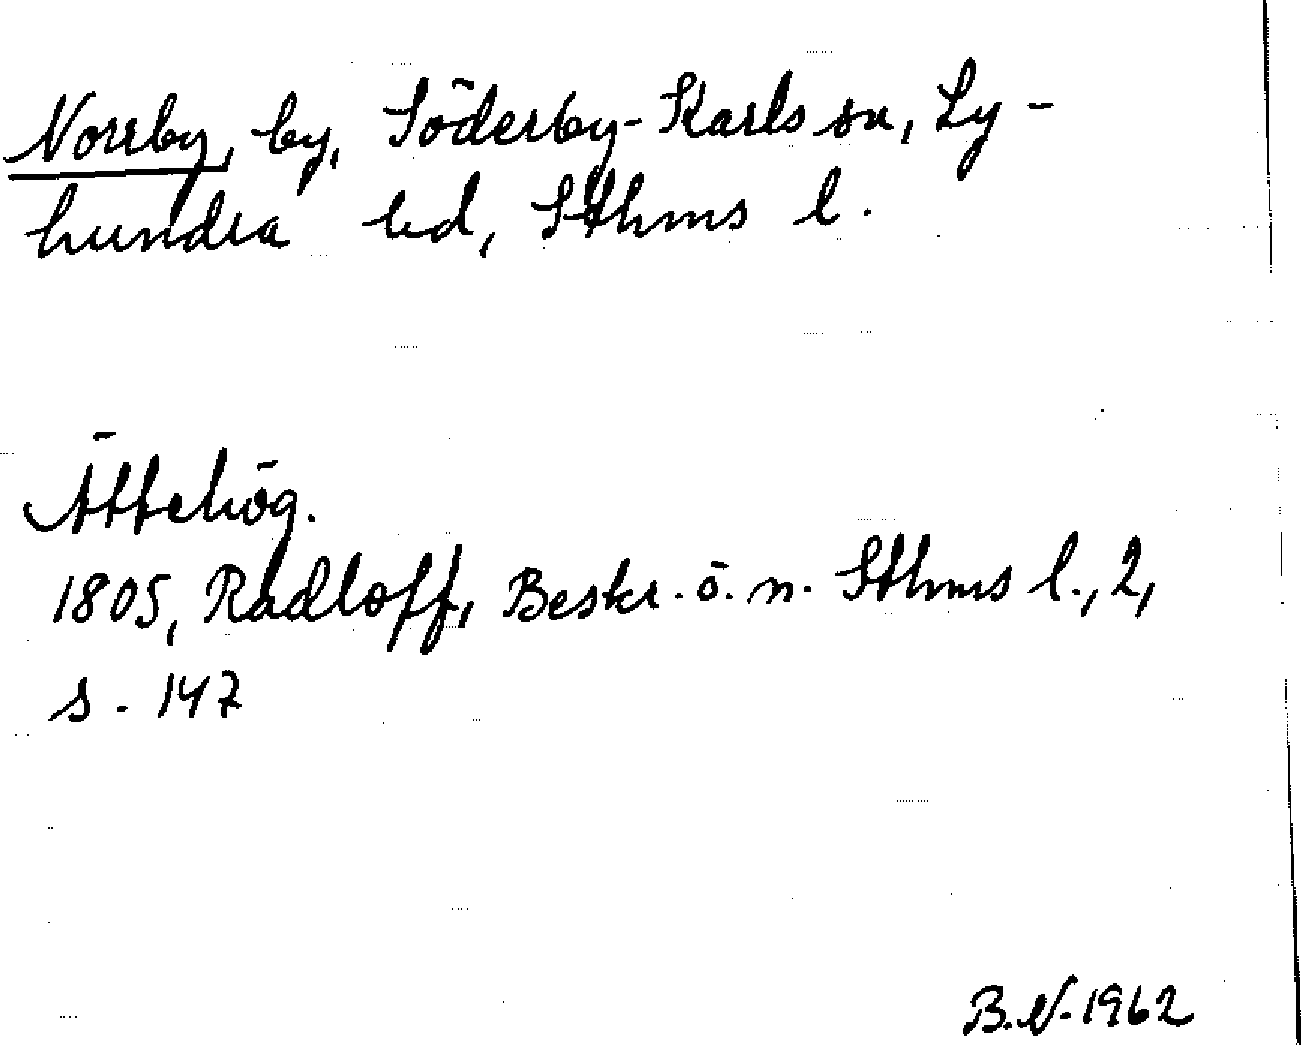 Norrby, by, Söderby-Karls sn, Ly-
hundra hd, Sthms l.
Ättehög.
1805, Radloff, Beskr. ö. n. Sthms l., 2,
s. 147
B.N. 1962